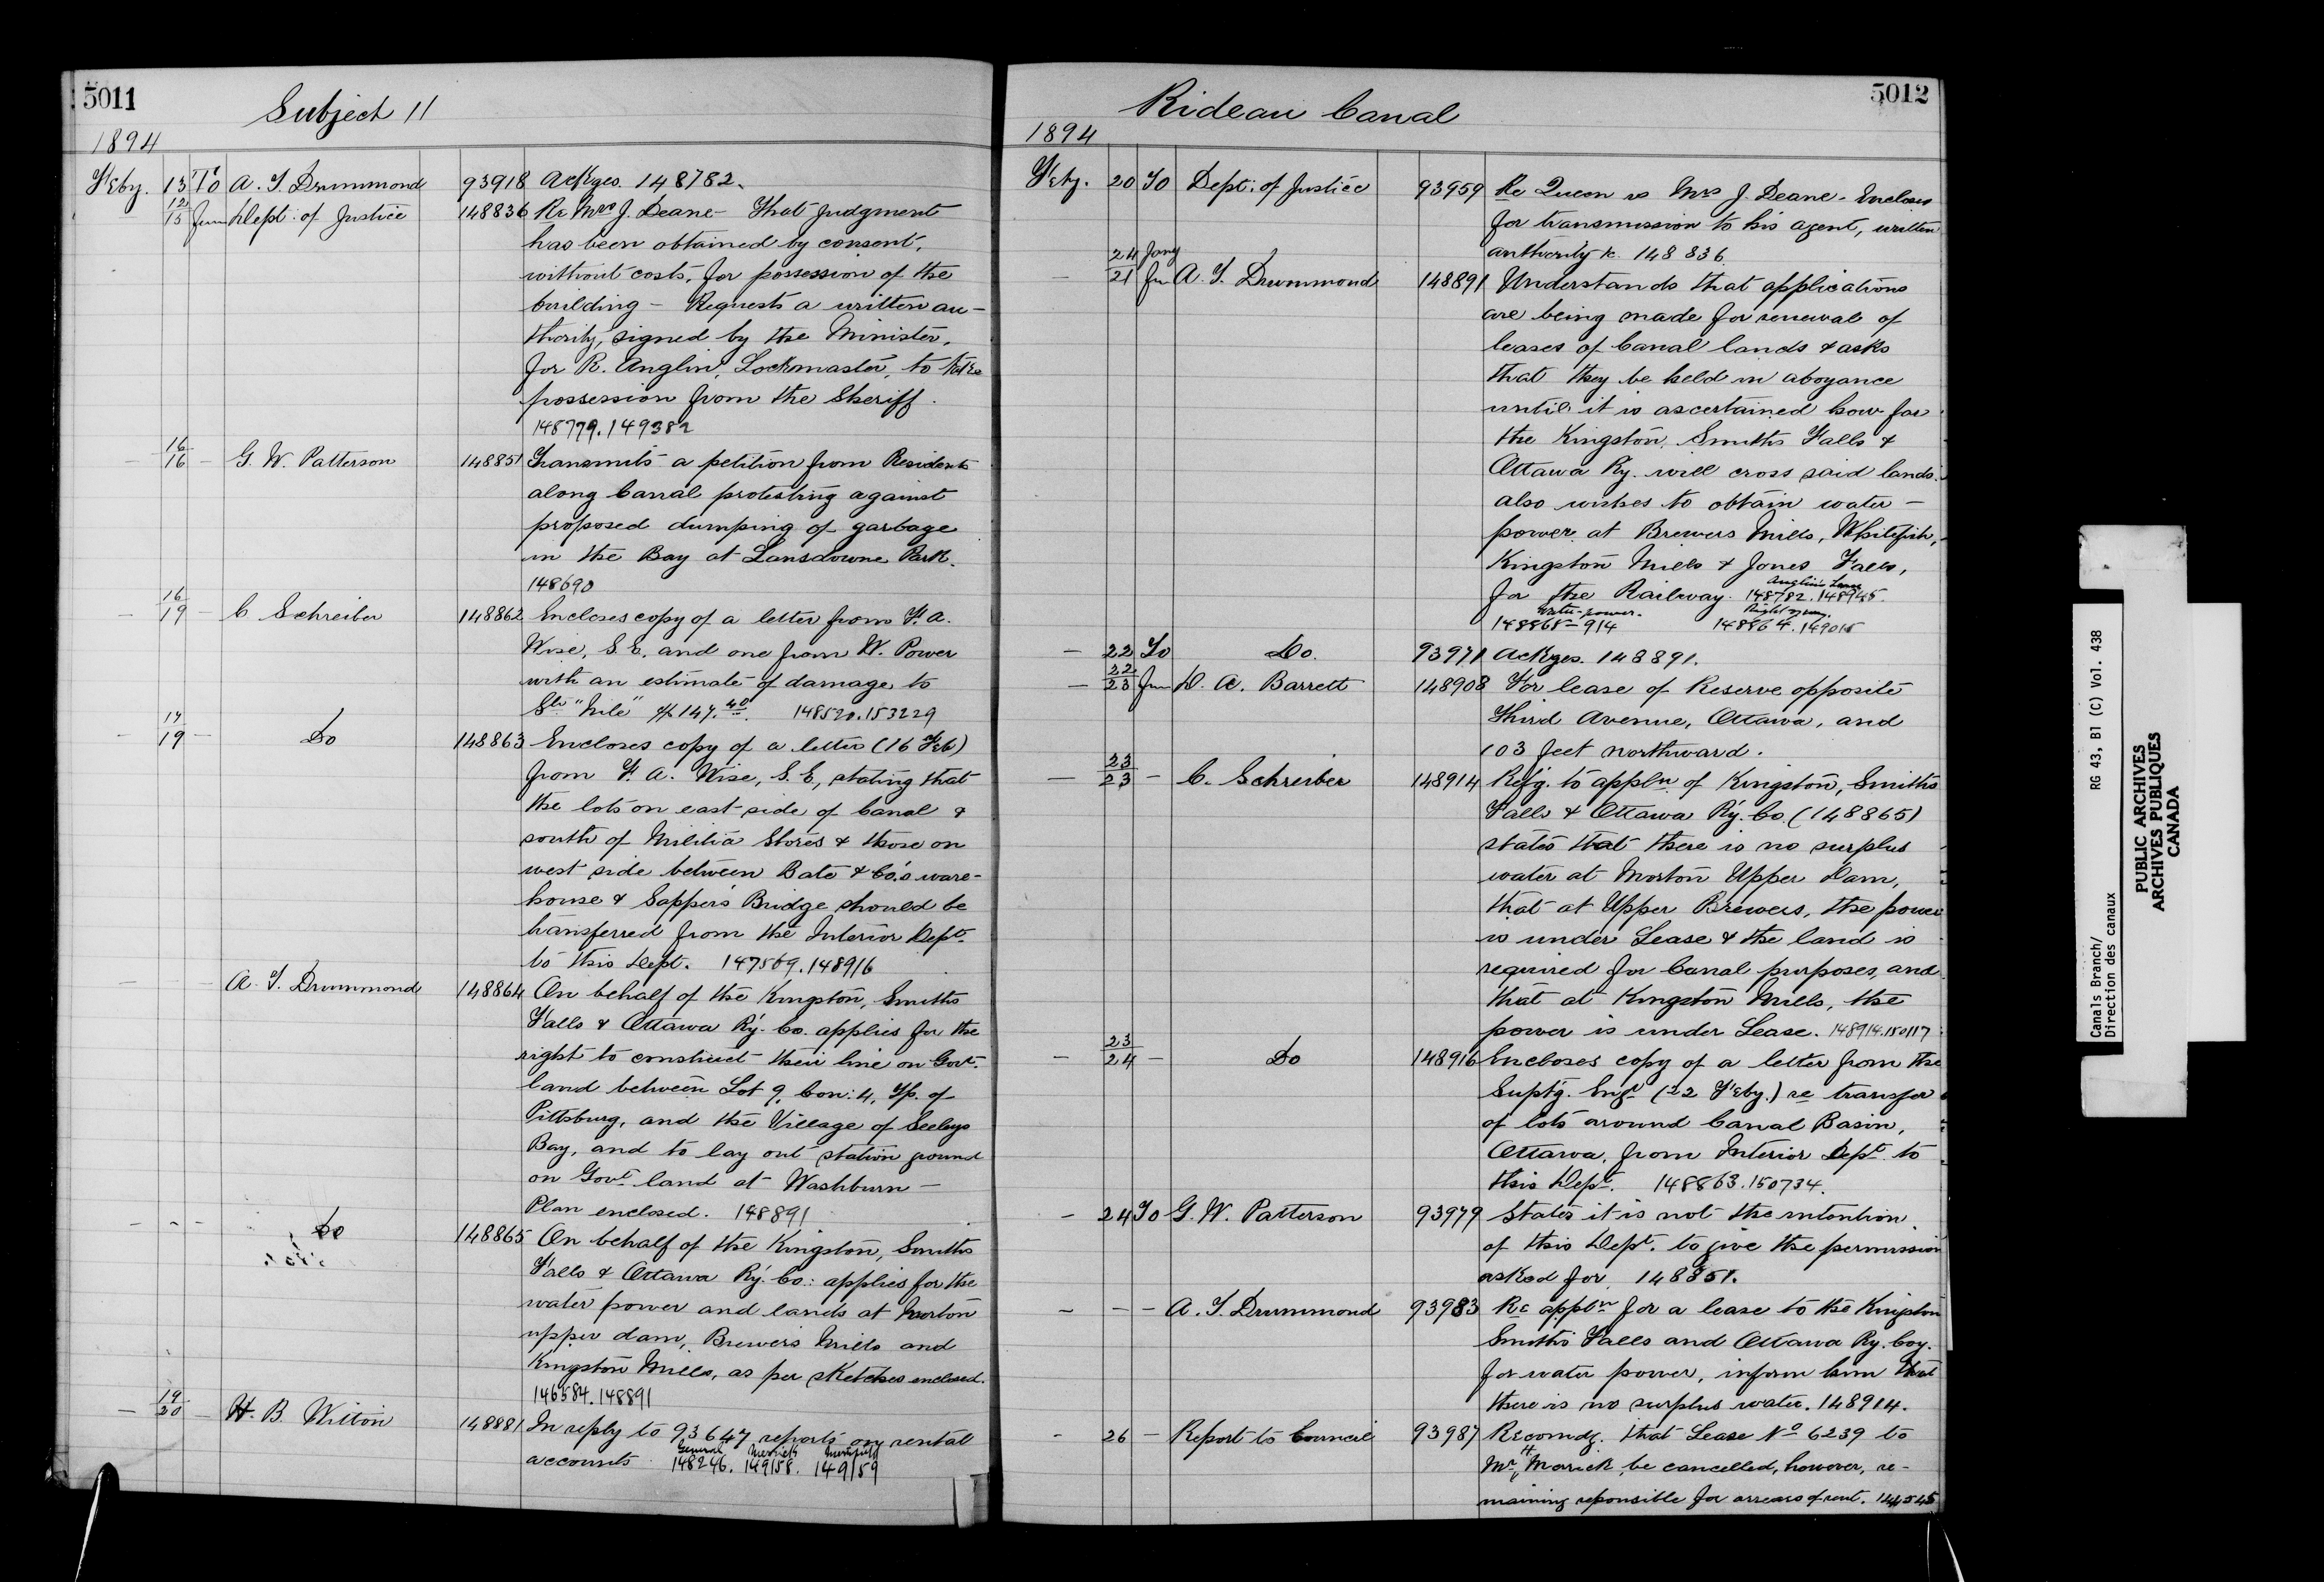 5011
Subject 11
1894
Feby. 13 To A. T. Drummond 93918 Ackges. 148782.
12/15 from Dept: of Justice 148836 Re Mrs J. Deane - That judgment
has been obtained by consent,
without costs, for possession of the
building - Requests a written au-
thority, signed by the Minister,
for R. Anglin, Lockmaster, to take
possession from the Sheriff.
148779. 149382
- 16/16 - G. W. Patterson 148851 Transmits a petition from Residents
along Canal protesting against
proposed dumping of garbage
in the Bay at Lansdowne Park.
148690
- 16/19 - C Schreiber 148862 Encloses copy of a letter from F. A.
Wise, S. E, and one from W. Power
with an estimate of damage to
Str "Nile" $147.40. 148520. 153229
- 17/19 - Do 148863 Encloses copy of a letter (16 Feb)
from F. A. Wise, S. E, stating that
the lots on east side of Canal &
south of Militia Stores & those on
west side between Bate & Co's ware-
house & Sappers Bridge should be
transferred from the Interior Dept.
to this Dept. 147569. 148916
- - - A. T. Drummond 148864 On behalf of the Kingston, Smiths
Falls & Ottawa Ry. Co. applies for the
right to construct their line on Govt.
land between Lot 9, Con: 4, Tp. of
Pittsburg, and the Village of Seeleys
Bay, and to lay out station ground
on Govt land at Washburn -
Plan enclosed. 148891
- - - Do 148865 On behalf of the Kingston, Smiths
Falls & Ottawa Ry. Co: applies for the
water power and lands at Morton
upper dam, Brewer's Mills and
Kingston Mills, as per sketches enclosed.
146584. 148891
- 19/20 - H. B. Witton 148881 In reply to 93647, reports on rental
General Merrick
accounts 148246. 149158. 149159
5012
Rideau Canal
1894
Feby. 20 To Dept: of Justice 93959 Re Queen vs Mrs J. Deane - Encloses
for transmission to his agent, written
authority &c. 148836.
- 24 Jany/21 fm A. T. Drummond 148891 Understands that applications
are being made for renewal of
leases of Canal lands & asks
that they be held in aboyance
until it is ascertained how far
the Kingston, Smiths Falls &
Ottawa Ry. will cross said lands.
also wishes to obtain water -
power at Brewers Mills, Whitefish,
Kingston Mills & Jones Falls,
Anglin's Lease
for the Railway. 148782. 148945.
Water-power. Right of way.
148865 - 914 148864. 149015
- 22 To Do. 93971 Ackges. 148891.
- 22/23 from D. A. Barrett 148908 For lease of Reserve opposite
Third Avenue, Ottawa, and
103 feet northward.
- 23/23 - C. Schreiber 148914 Refg. to appln of Kingston, Smiths
Falls & Ottawa Ry. Co. (148865)
states that there is no surplus
water at Morton Upper Dam,
that at Upper Brewers, the power
is under Lease & the land is
required for Canal purposes, and
that at Kingston Mills, the
power is under Lease. 148914. 150117
- 23/24 - Do 148916 Encloses copy of a letter from the
Suptg. Engr (22 Feby.) re transfer
of lots around Canal Basin,
Ottawa, from Interior Dept. to
this Dept. 148863. 150734.
- 24 To G. W. Patterson 93979 States it is not the intention
of this Dept. to give the permission
asked for. 148851.
- - - A. T. Drummond 93983 Re appln for a lease to the Kingston
Smiths Falls and Ottawa Ry. Coy.
for water power, inform him that
there is no surplus water. 148914.
- 26 - Report to Council 93987 Recomdg. that Lease No 6239 to
Mr H. Merrick, be cancelled, however, re-
maining reponsible for arrears of rent. 144545
Canals Branch/
Direction des canaux
RG 43, B1 (C) Vol. 438
PUBLIC ARCHIVES
ARCHIVES PUBLIQUES
CANADA